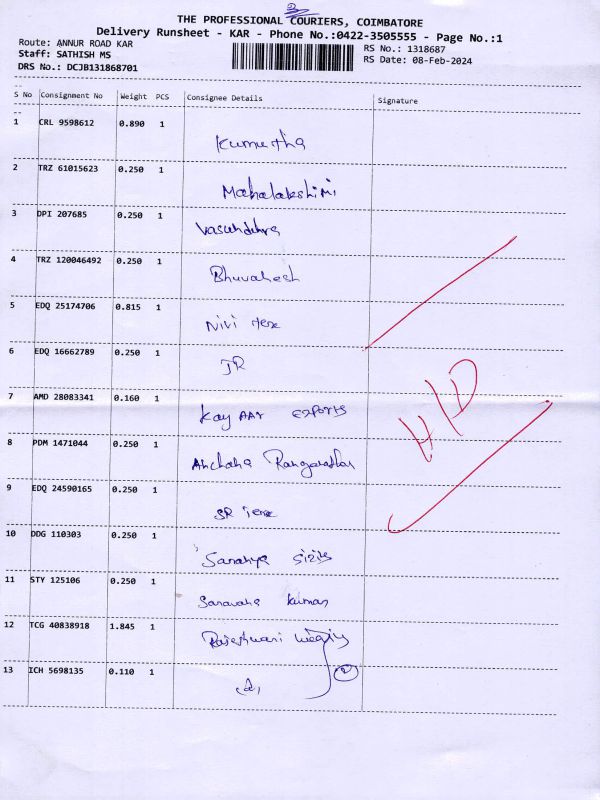 3
THE PROFESSIONAL COURIERS, COIMBATORE
Delivery Runsheet - KAR - Phone No.:0422-3505555 - Page No.:1
Route: ANNUR ROAD KAR RS No.: 1318687
Staff: SATHISH MS RS Date: 08-Feb-2024
DRS No.: DCJB131868701
S No Consignment No Weight PCS Consignee Details Signature
1 CRL 9598612 0.890 1
Kumutha
2 TRZ 61015623 0.250 1
Mahalakshimi
3 DPI 207685 0.250 1
Vasundhra
4 TRZ 120046492 0.250 1
Bhuvanesh
5 EDQ 25174706 0.815 1
Nivi Tex
6 EDQ 16662789 0.250 1
JR
H/D
7 AMD 28083341 0.160 1
Kay AAY exports
8 PDM 1471044 0.250 1
Archana Rangarathan
9 EDQ 24590165 0.250 1
SR Tex
10 DDG 110303 0.250 1
Saranya
11 STY 125106 0.250 1
Saravana kumar
12 TCG 40838918 1.845 1
Rajeshwari
13 ICH 5698135 0.110 1
2